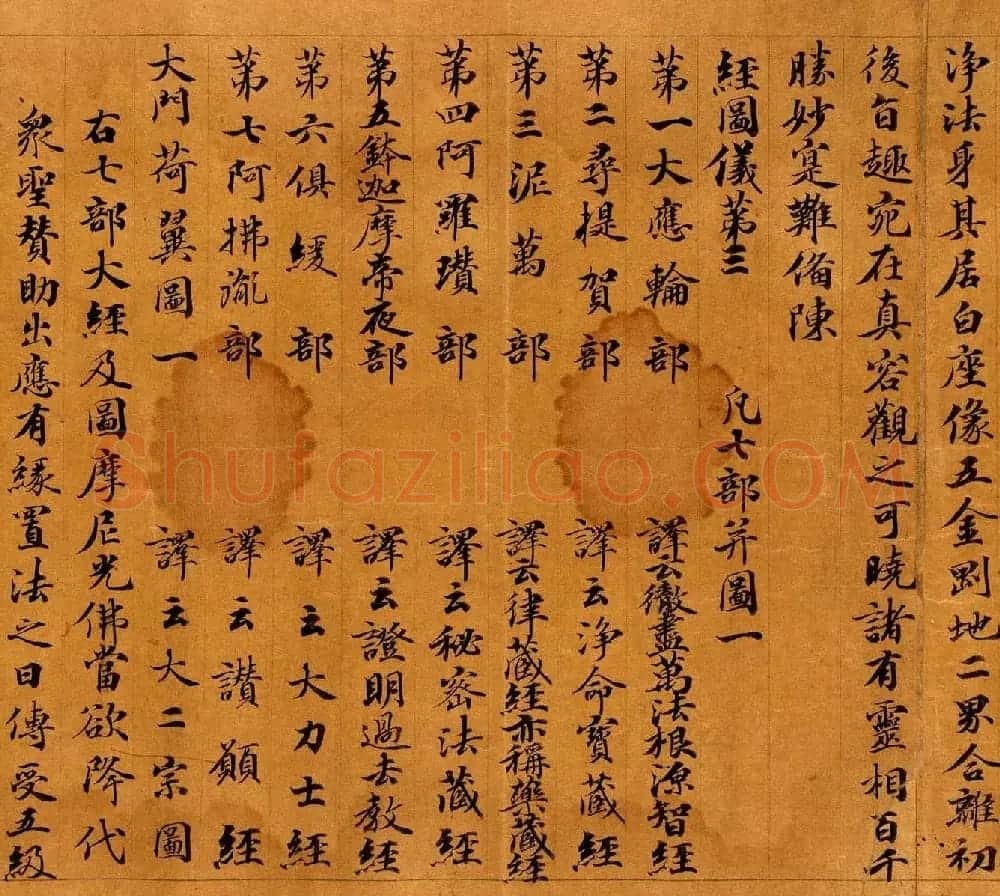 淨法身其居白座像五金剛地二界合離初
後旨趣宛在真容觀之可曉諸有靈相百千
勝妙寔難俻陳
經圖儀第三 凡七部并圖一
第一大應輪部 譯云徹盡萬法根源智經
第二尋提賀部 譯云淨命寶藏經
第三泥萬部 譯云律藏經亦稱藥藏經
第四阿羅瓚部 譯云秘密法藏經
第五鉢迦摩帝夜部 譯云證明過去教經
第六俱緩部 譯云大力士經
第七阿拂胤部 譯云讃願經
大門荷翼圖一 譯云大二宗圖
右七部大經及圖摩尼光佛當欲降代
衆聖贊助出應有緣置法之日傳受五級
Shufaziliao.COM